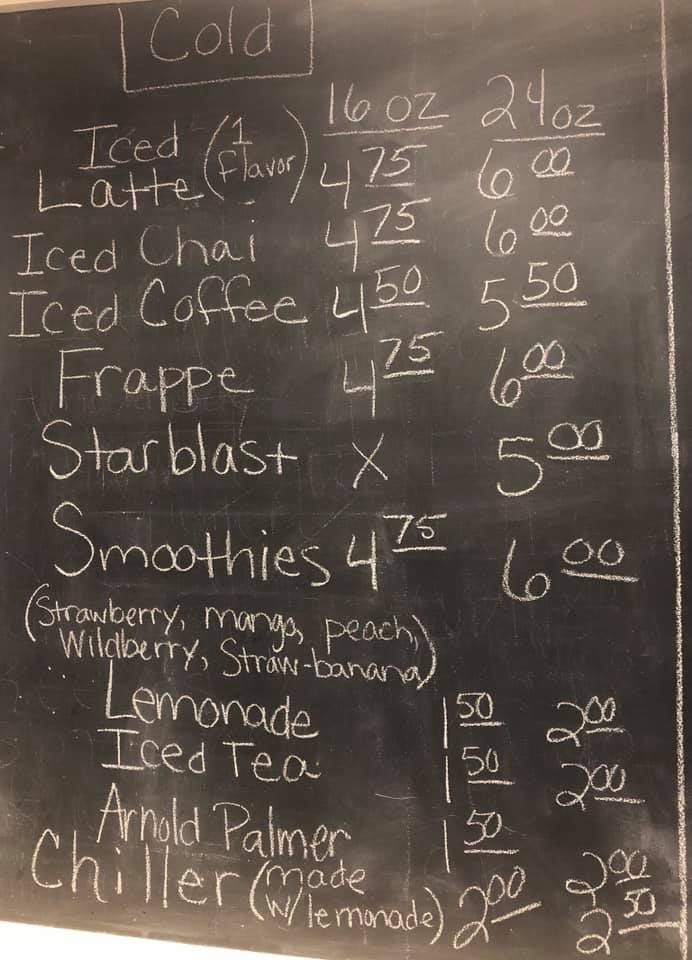 Cold
16 oz 24 oz
Iced Latte (1 flavor) 4 75 6 00
Iced Chai 4 75 6 00
Iced Coffee 4 50 5 50
Frappe 4 75 6 00
Starblast X 5 00
Smoothies 4 75 6 00
(Strawberry, mango, peach,
Wildberry, Straw-banana)
Lemonade 1 50 2 00
Iced Tea 1 50 2 00
Arnold Palmer 1 50 2 00
Chiller (made w/ lemonade) 2 00 2 50